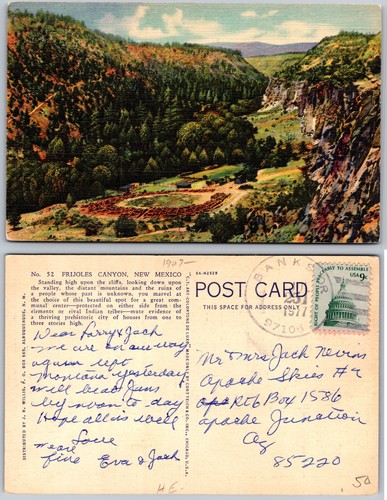 1907-
No. 52 FRIJOLES CANYON, NEW MEXICO
5A-H2528
Standing high upon the cliffs, looking down upon
the valley, the distant mountains and the ruins of
a people whose past is unknown, you marvel at
the choice of this beautiful spot for a great com-
munal center—protected on either side from the
elements or rival Indian tribes—mute evidence of
a thriving prehistoric city of houses from one to
three stories high.
POST CARD
THIS SPACE FOR ADDRESS ONLY
BANKS
1977
97106
RIGHT OF PEOPLE PEACEABLY TO ASSEMBLE
USA 9c
Dear Perry & Jack
we are on our way
again left
Montana yesterday
will be at Jims
by noon to day
Hope all is well
Love
we are
fine Eva & Jack
Mr & Mrs Jack Nevins
Apache Skies #
Rt 6 Box 1586
Apache Junction
Az
85220
HE-
.50